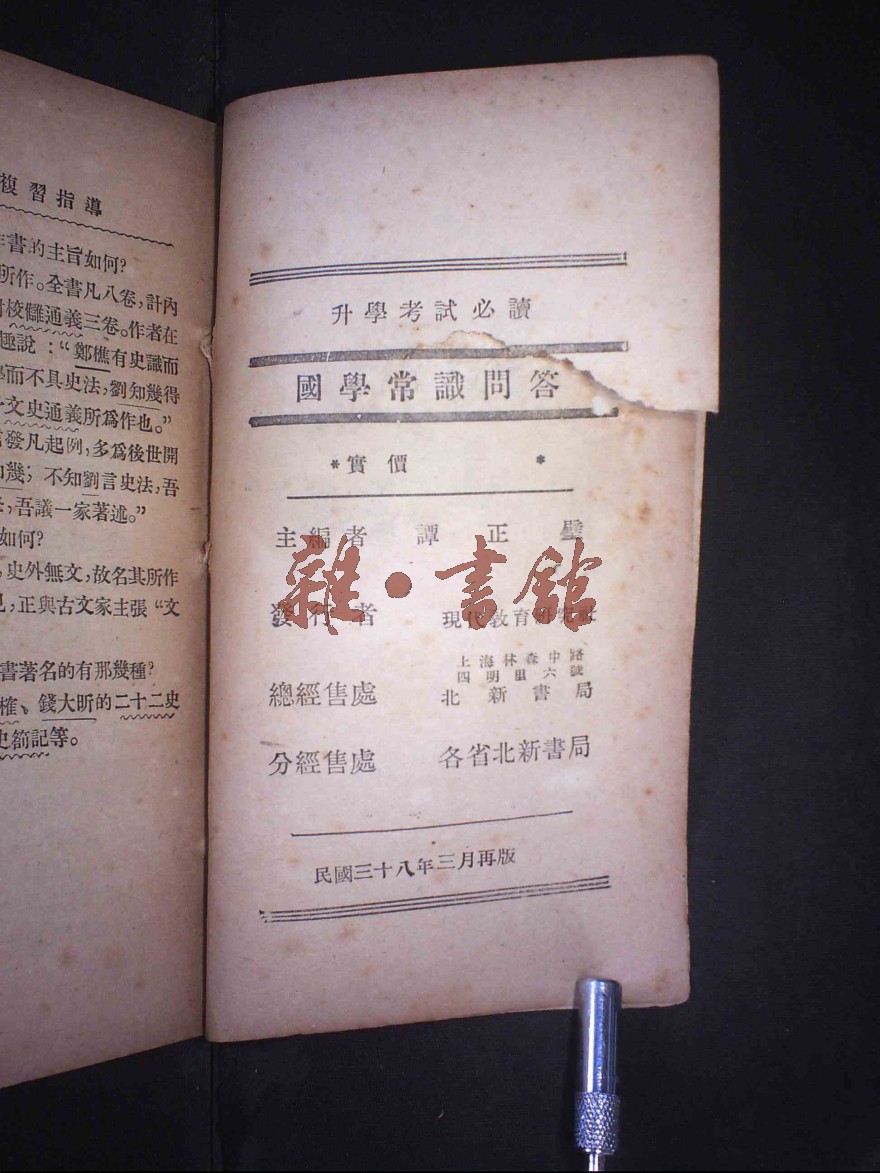 複習指導
書的主旨如何?
所作。全書凡八卷,計內
校讎通義三卷。作者在
趣說:“鄭樵有史識而
學而不具史法,劉知幾得
文史通義所爲作也。”
發凡起例,多爲後世開
幾;不知劉言史法,吾
,吾議一家著述。”
如何?
,史外無文,故名其所作
,正與古文家主張“文
書著名的有那幾種?
榷、錢大昕的二十二史
史箚記等。
升學考試必讀
國學常識問答
*實價 *
主編者 譚正璧
發行者 現代教育研究社
上海林森中路
四明里六號
總經售處 北新書局
分經售處 各省北新書局
民國三十八年三月再版
雜·書館